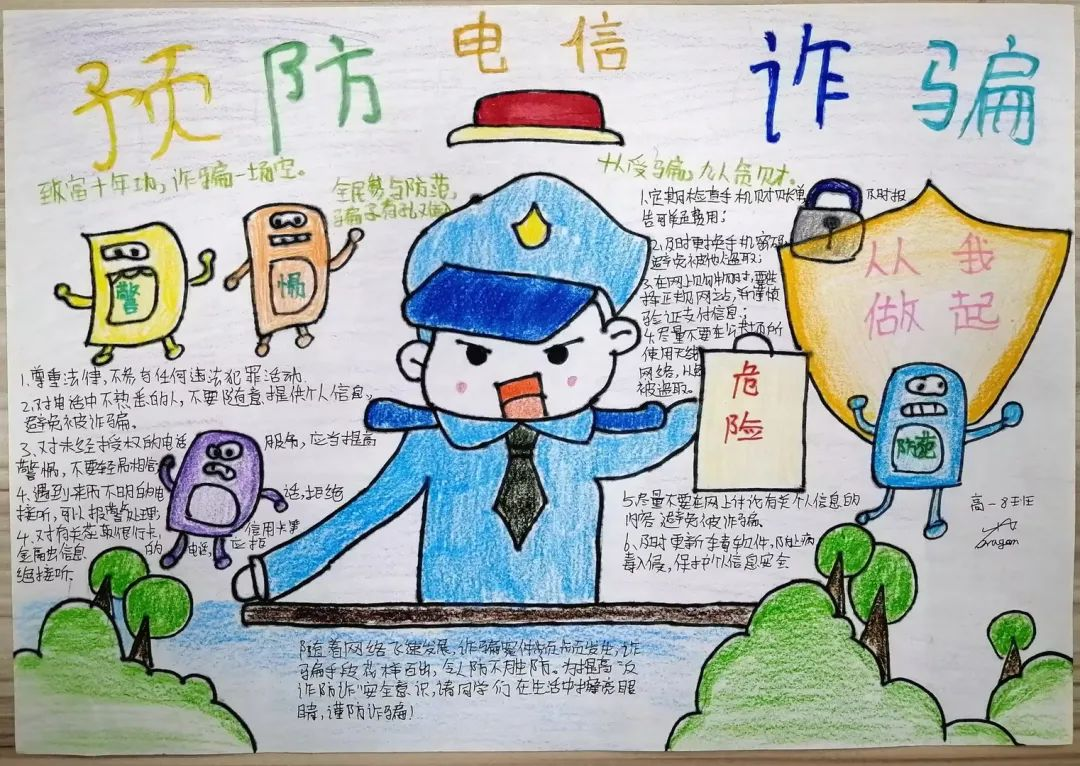 预防电信诈骗
致富十年功,诈骗一场空。
全民参与防范,
骗子有孔难
一人受骗,九人贪财。
警
惕
1.尊重法律,不参与任何违法犯罪活动.
2.对电话中不熟悉的人,不要随意提供个人信息,
避免被诈骗.
3.对未经授权的电话 服务,应当提高
警惕,不要轻易相信
4.遇到来历不明的电 话,拒绝
接听,可以报警处理;
4.对有关套取银行卡, 信用卡等
金融出信息 的 电话, 应拒
绝接听.
1.定期检查手机财账单 及时报
告可疑费用;
2.及时更换手机密码
避免被他盗取;
3.在网上购物时,要选
择正规网站,新谨慎
验证支付信息;
4.尽量不要在公共场所
使用无线
网络,以免
被盗取.
危
险
从从我
做起
防范
5.尽量不要在网上讨论有关个人信息的
内容 避免被诈骗.
6.及时更新手毒软件,防止病
毒入侵,保护个信息安全
高一8王任
Dragon
随着网络飞速发展,诈骗案件频频发生,诈
骗手段花样百出,令人防不胜防。为提高“反
诈防诈”安全意识,请同学们在生活中擦亮眼
睛,谨防诈骗!